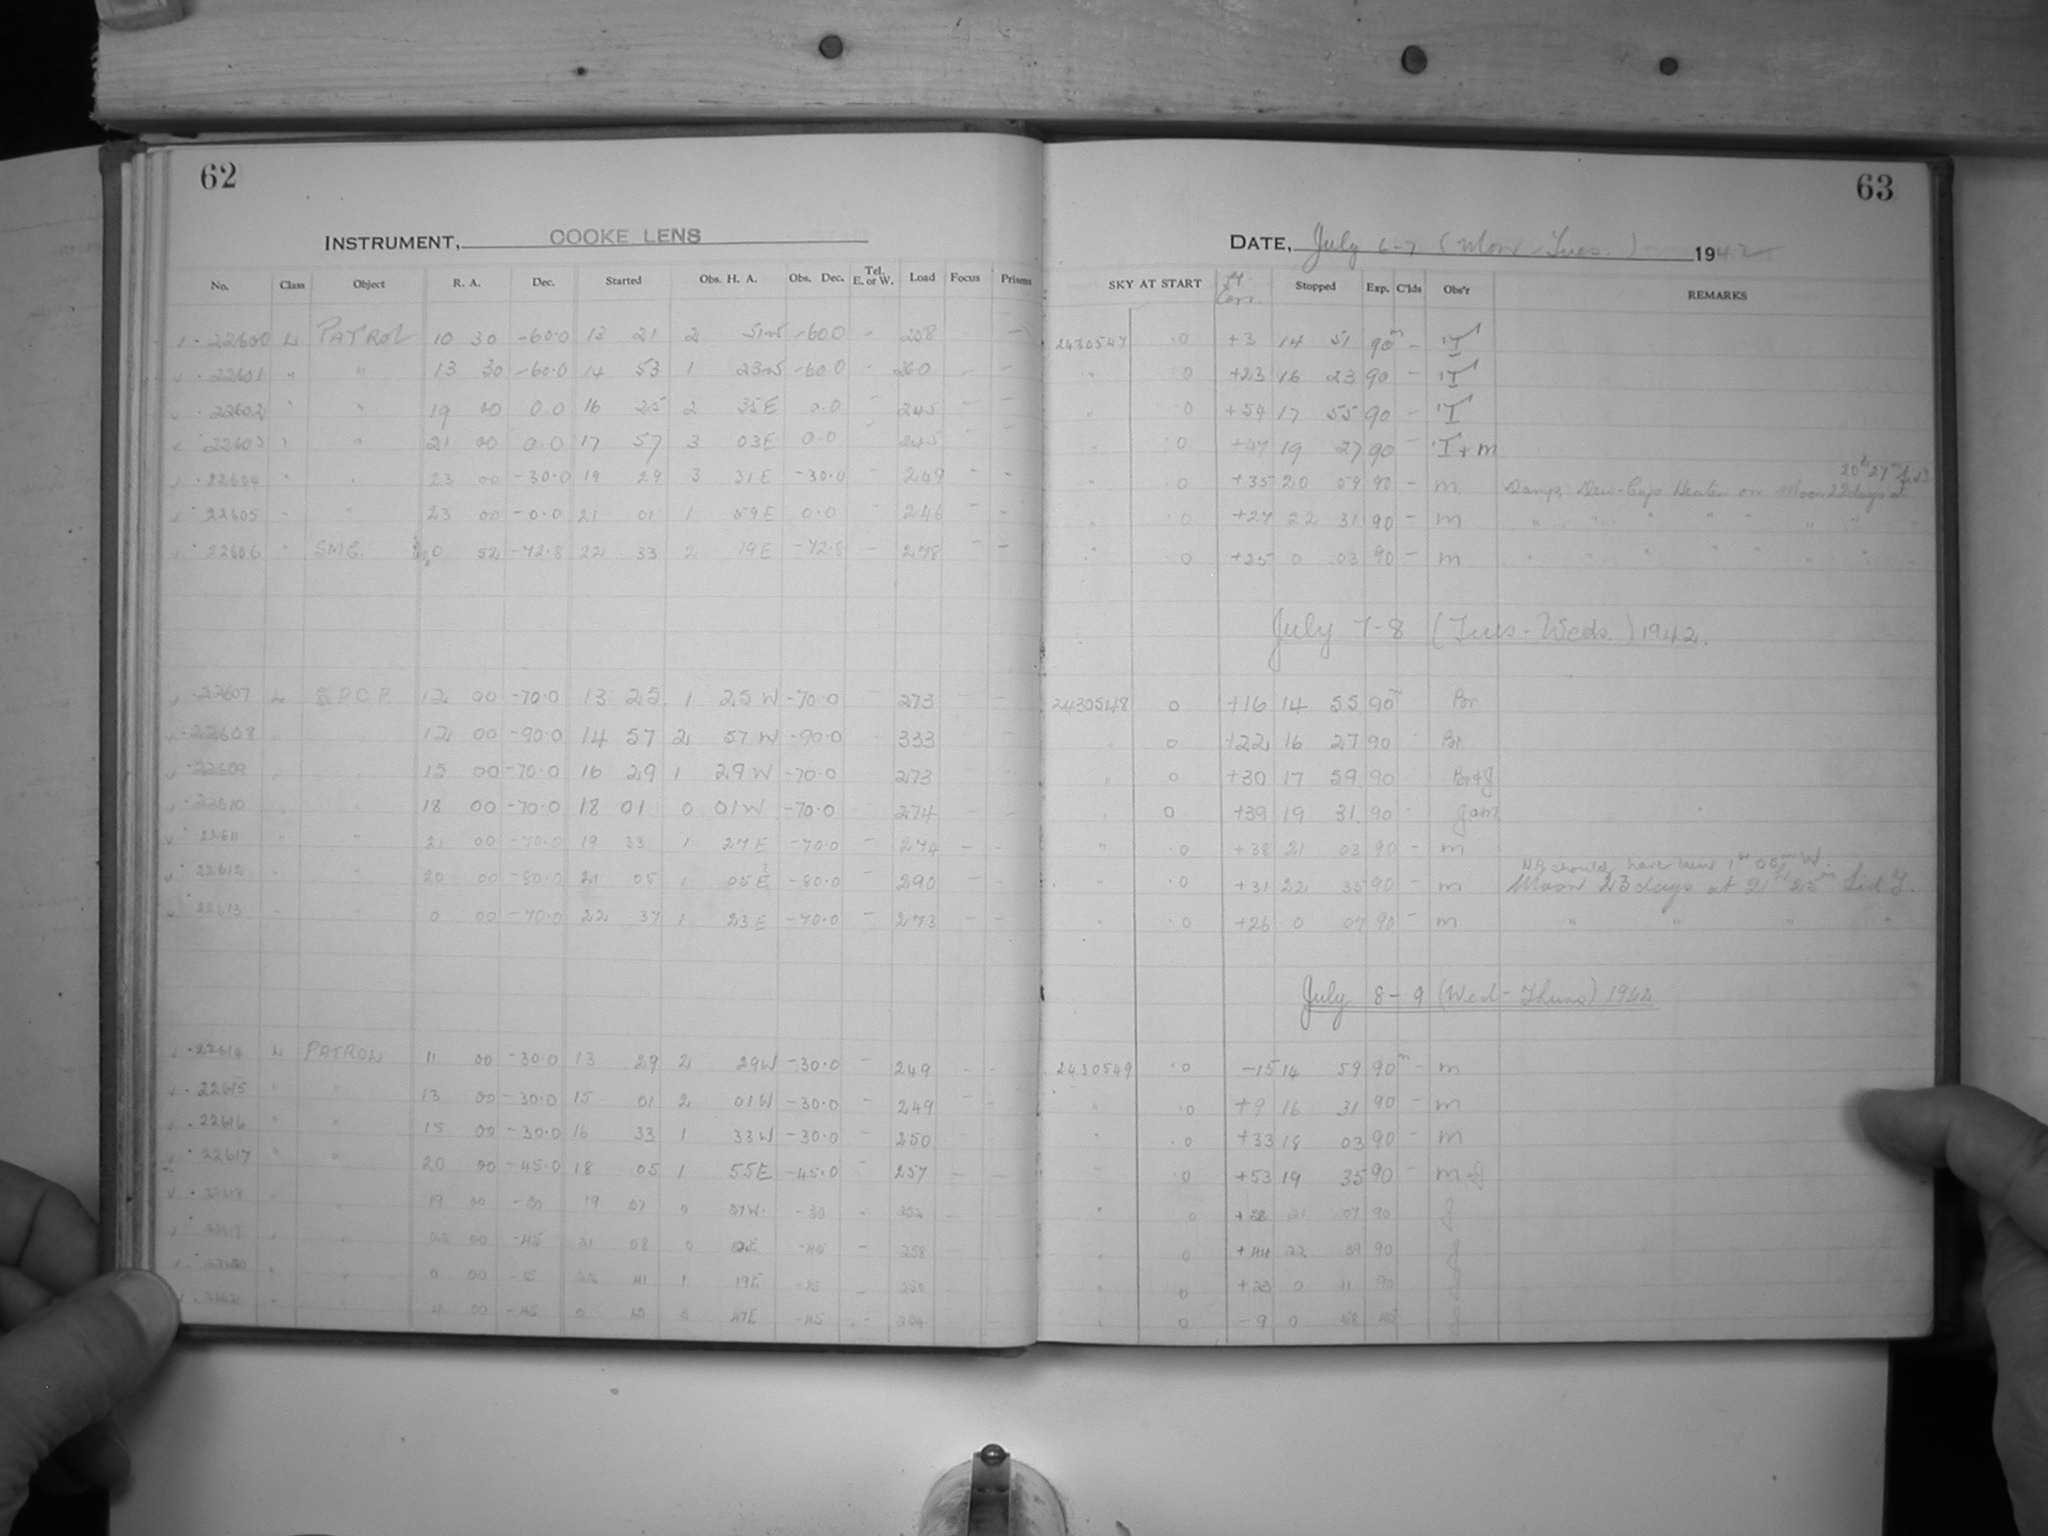 62
63
INSTRUMENT, COOKE LENS
DATE, July 6-7 (Mon-Tues.) 1942
No. Class Object R. A. Dec. Started Obs. H. A. Obs. Dec. Tel. E. or W. Load Focus Prisms SKY AT START Stopped Exp. C'lds Obs'r REMARKS
22600 L PATROL 10 30 -60.0 13 21 2 51W -60.0 - 258 - - 2430547 0 +3 14 51 90m - T
22601 " " 13 30 -60.0 14 53 1 23W -60.0 - 260 - - " 0 +23 16 23 90 - T
22602 " " 19 00 0.0 16 25 2 35E 0.0 - 245 - - " 0 +54 17 55 90 - T
22603 " " 21 00 0.0 17 57 3 03E 0.0 - 245 - - " 0 +47 19 27 90 - T+m
22604 " " 23 00 -30.0 19 29 3 31E -30.0 - 249 - - " 0 +35 20 59 90 - m. Damp, Dew-Cap Heater on Moon 22 days at 20h 27m Sid T.
22605 " " 23 00 -0.0 21 01 1 59E 0.0 - 246 - - " 0 +27 22 31 90 - m " " " " " " "
22606 " SMC. 0 52 -72.8 22 33 2 19E -72.8 - 278 - - " 0 +25 0 03 90 - m " " " " " " "
July 7-8 (Tues-Weds.) 1942.
22607 L S.P.C.P. 12 00 -70.0 13 25 1 25W -70.0 - 273 - - 2430548 0 +16 14 55 90m Br
22608 12 00 -90.0 14 57 2 57W -90.0 333 " 0 +22 16 27 90 Br
22609 15 00 -70.0 16 29 1 29W -70.0 273 " 0 +30 17 59 90 Br+J
22610 18 00 -70.0 18 01 0 01W -70.0 274 - - " 0 +39 19 31 90 - J+m
22611 " " 21 00 -70.0 19 33 1 27E -70.0 - 274 - - " 0 +38 21 03 90 - m
22612 " " 20 00 -80.0 21 05 1 05E? -80.0 - 290 - - " 0 +31 22 35 90 - m HA should have been 1h 05m W. Moon 23 days at 21h 25m Sid T.
22613 " " 0 00 -70.0 22 37 1 23E -70.0 - 273 - - " 0 +26 0 07 90 - m " " " "
July 8-9 (Wed-Thurs) 1942
22614 L PATROL 11 00 -30.0 13 29 2 29W -30.0 - 249 - - 2430549 0 -15 14 59 90m - m
22615 " " 13 00 -30.0 15 01 2 01W -30.0 - 249 - - " 0 +9 16 31 90 - m
22616 " " 15 00 -30.0 16 33 1 33W -30.0 - 250 - - " 0 +33 18 03 90 - m
22617 " " 20 00 -45.0 18 05 1 55E -45.0 - 257 - - " 0 +53 19 35 90 - m+J
22618 " " 19 00 -30 19 37 0 37W -30 - 252 - - " 0 +58 21 07 90 J
22619 " " 22 00 -45 21 08 0 52E -45 - 258 " 0 +44 22 39 90 J
22620 " " 0 00 -15 22 41 1 19E -15 - 250 " 0 +23 0 11 90 J
22621 " " 4 00 -45 0 13 3 47E -45 - 254 " 0 -9 0 58 45 J